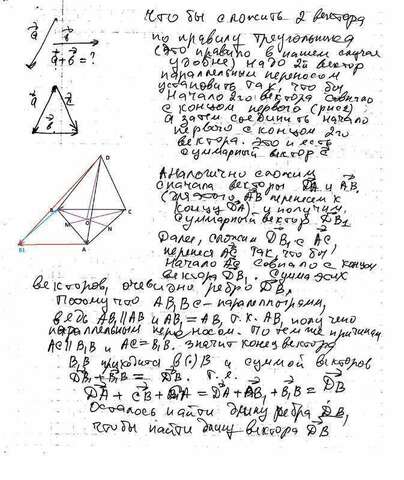 Что бы сложить 2 вектора
по правилу треугольника
(это правило в нашем случае
удобнее) надо 2й вектор
параллельным переносом
установить так, что бы
начало 2го вектора совпало
с концом первого (рис)
а затем соединить начало
первого с концом 2го
вектора. Это и есть
суммарный вектор c
a
b
a+b=?
a
c
b
Аналогично сложим
сначала векторы DA и AB,
AB перенесем к
концу DA) и получим
суммарный вектор DB1
D
B
C
M
O
N
B1
A
Далее, сложим DB1 с AC,
перенеся AC так, что бы
начало AC совпало с концом
вектора DB1. Сумма этих
векторов, очевидно ребро DB,
Потому что AB1BC - параллелограмм,
ведь AB1∥AB и AB1=AB, т.к. AB1 получено
параллельным переносом. По тем же причинам
AC∥B1B и AC=B1B. значит конец вектора
B1B приходится в (·)B и суммой векторов
DB1+B1B = DB. т.е.
DA + CB + = DA+AB1+B1B = DB
Осталось найти длину ребра DB,
чтобы найти длину вектора DB